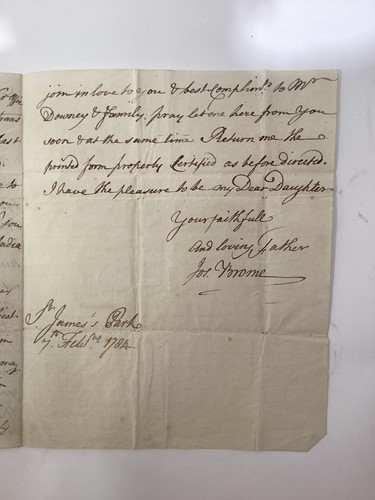 join in love to you & best Complimts. to Mr
Downey & Family, pray let me here from You
soon & at the same time Return me the
printed form properly Certified as before directed.
I have the pleasure to be my Dear Daughter
Your faithfull
and loving Father
Jos. Brome
St. James's Park
7th. Feby. 1784